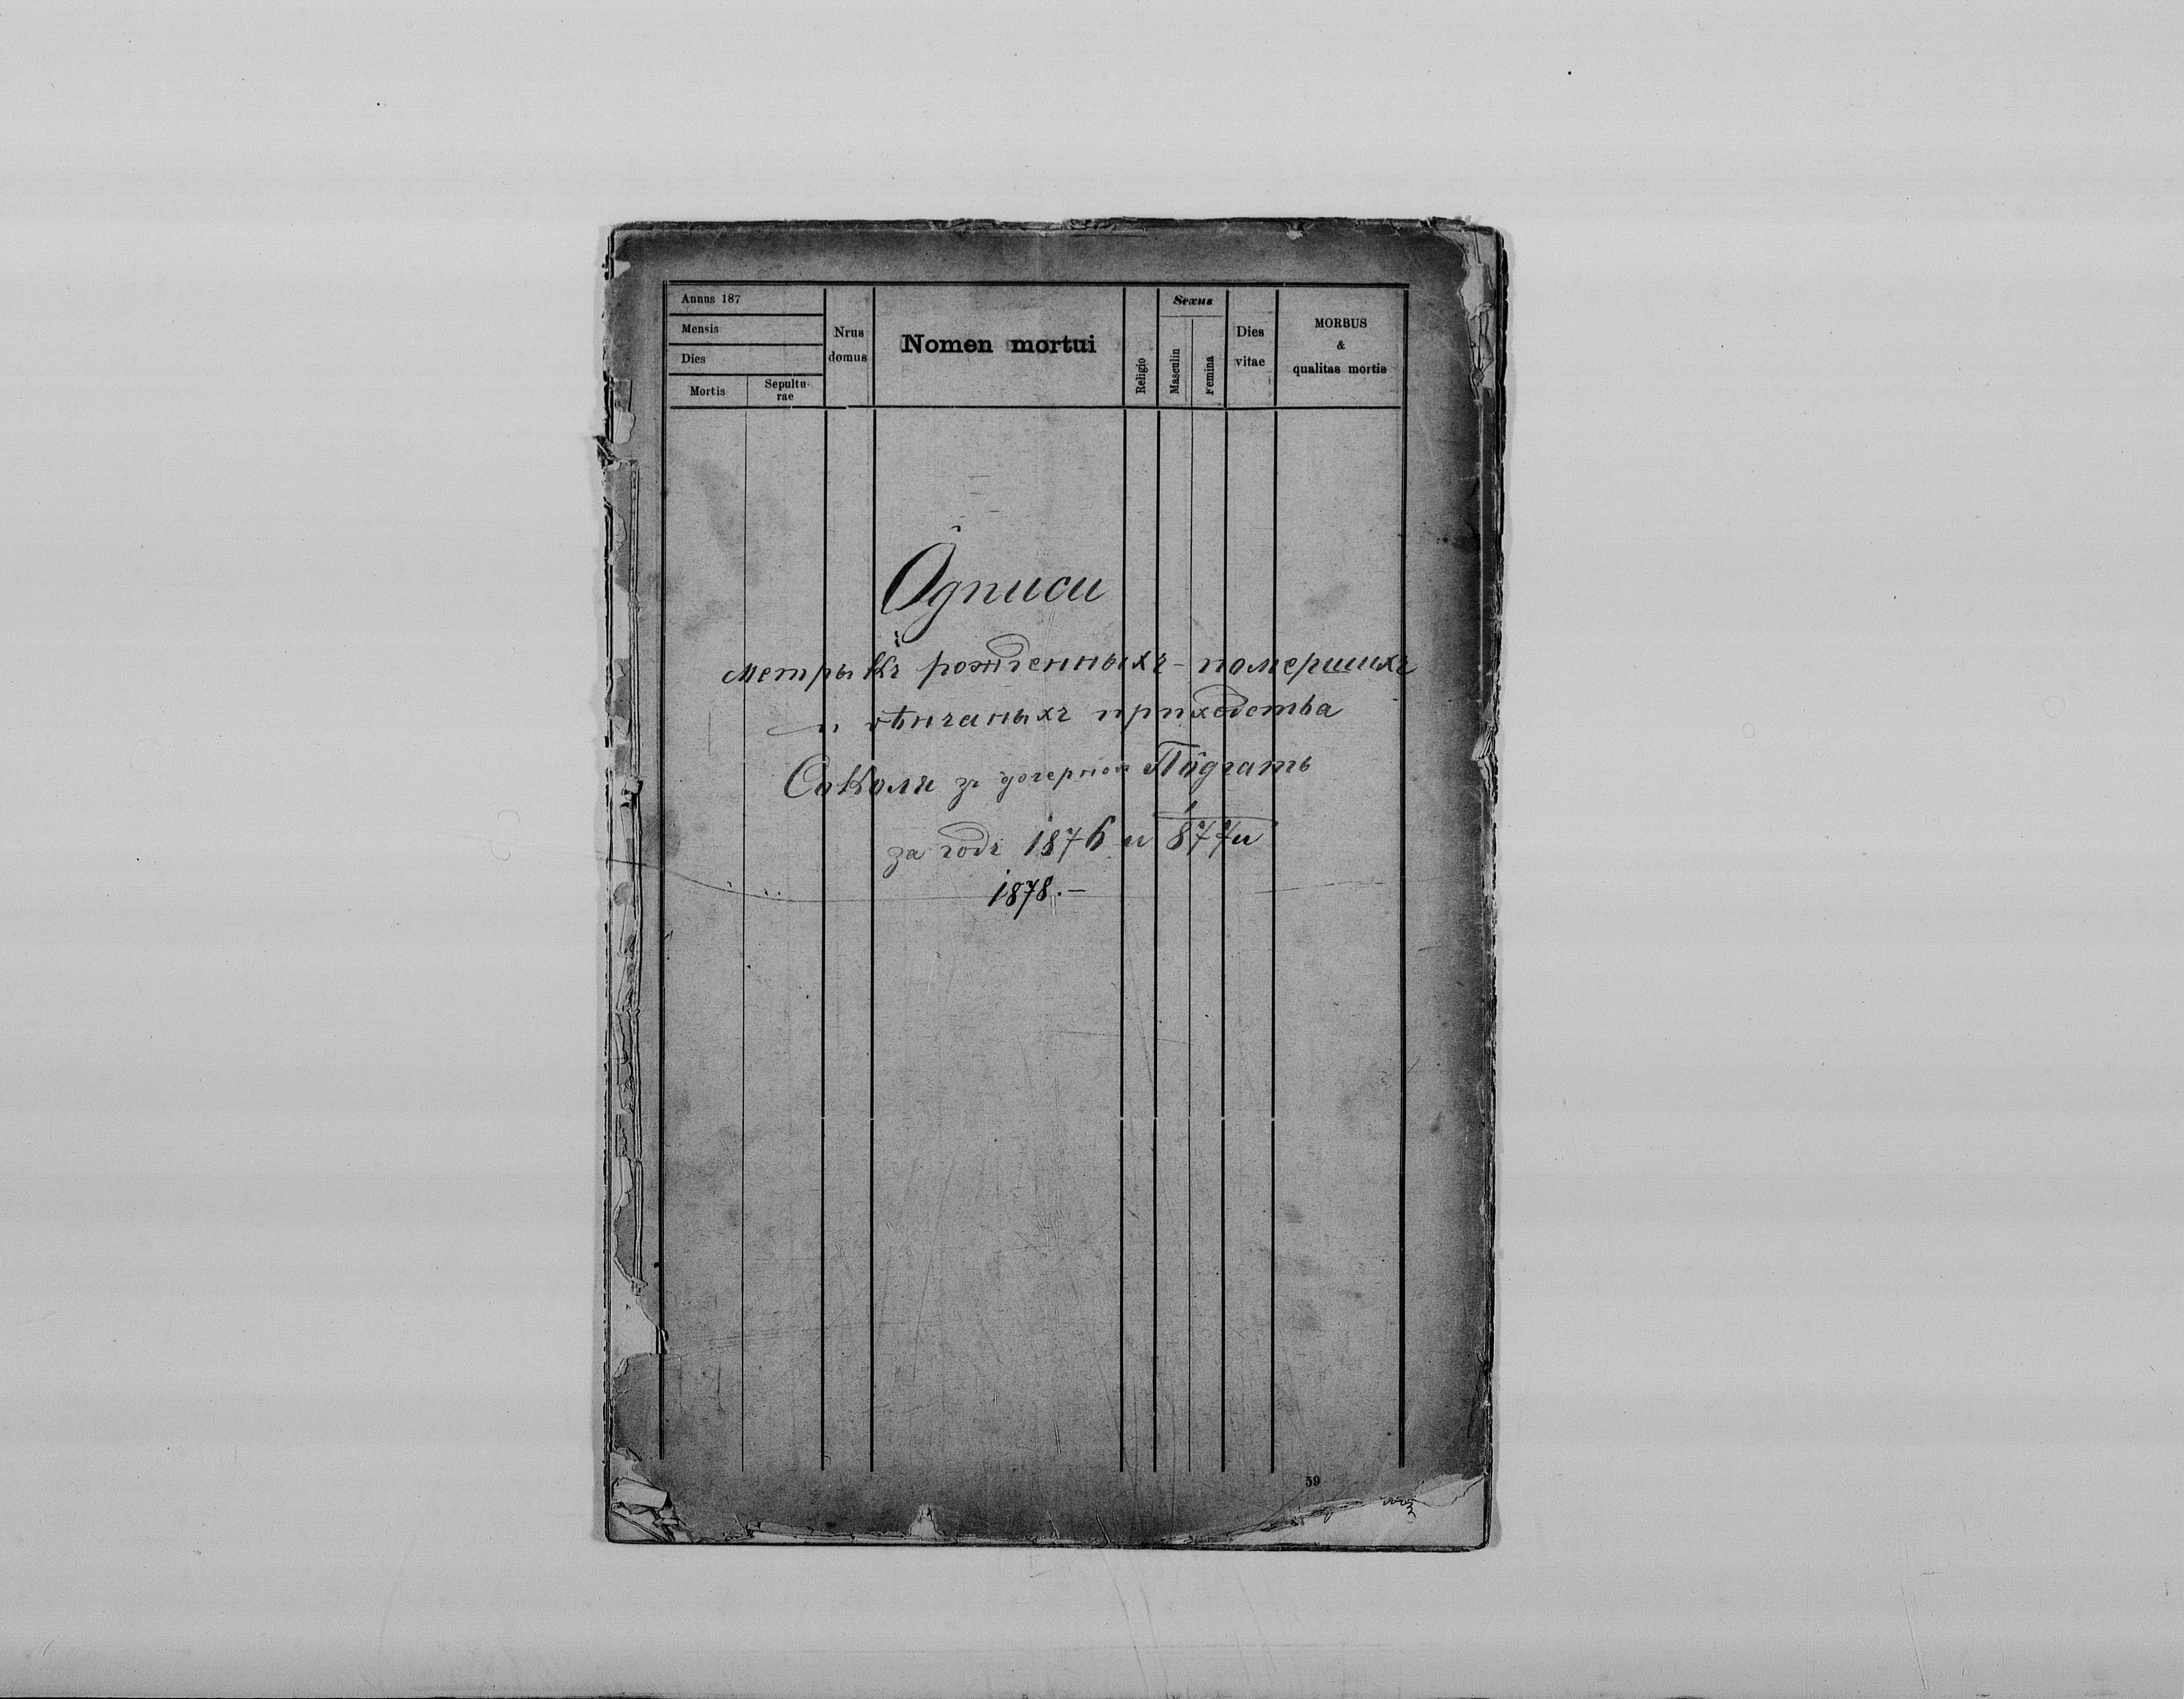 Annus 187
Mensis
Dies
Mortis
Sepultu-
rae
Nrus
domus
Nomen mortui
Religio
Sexus
Masculin
Femina
Dies
vitae
MORBUS
&
qualitas mortis
Ôдписи
метрыкъ рожденныхъ - помершихъ
и вѣнчаныхъ приходства
Соколя зъ дочерною Пôдгать
за годъ 1876 и 1877 и
1878. –
59